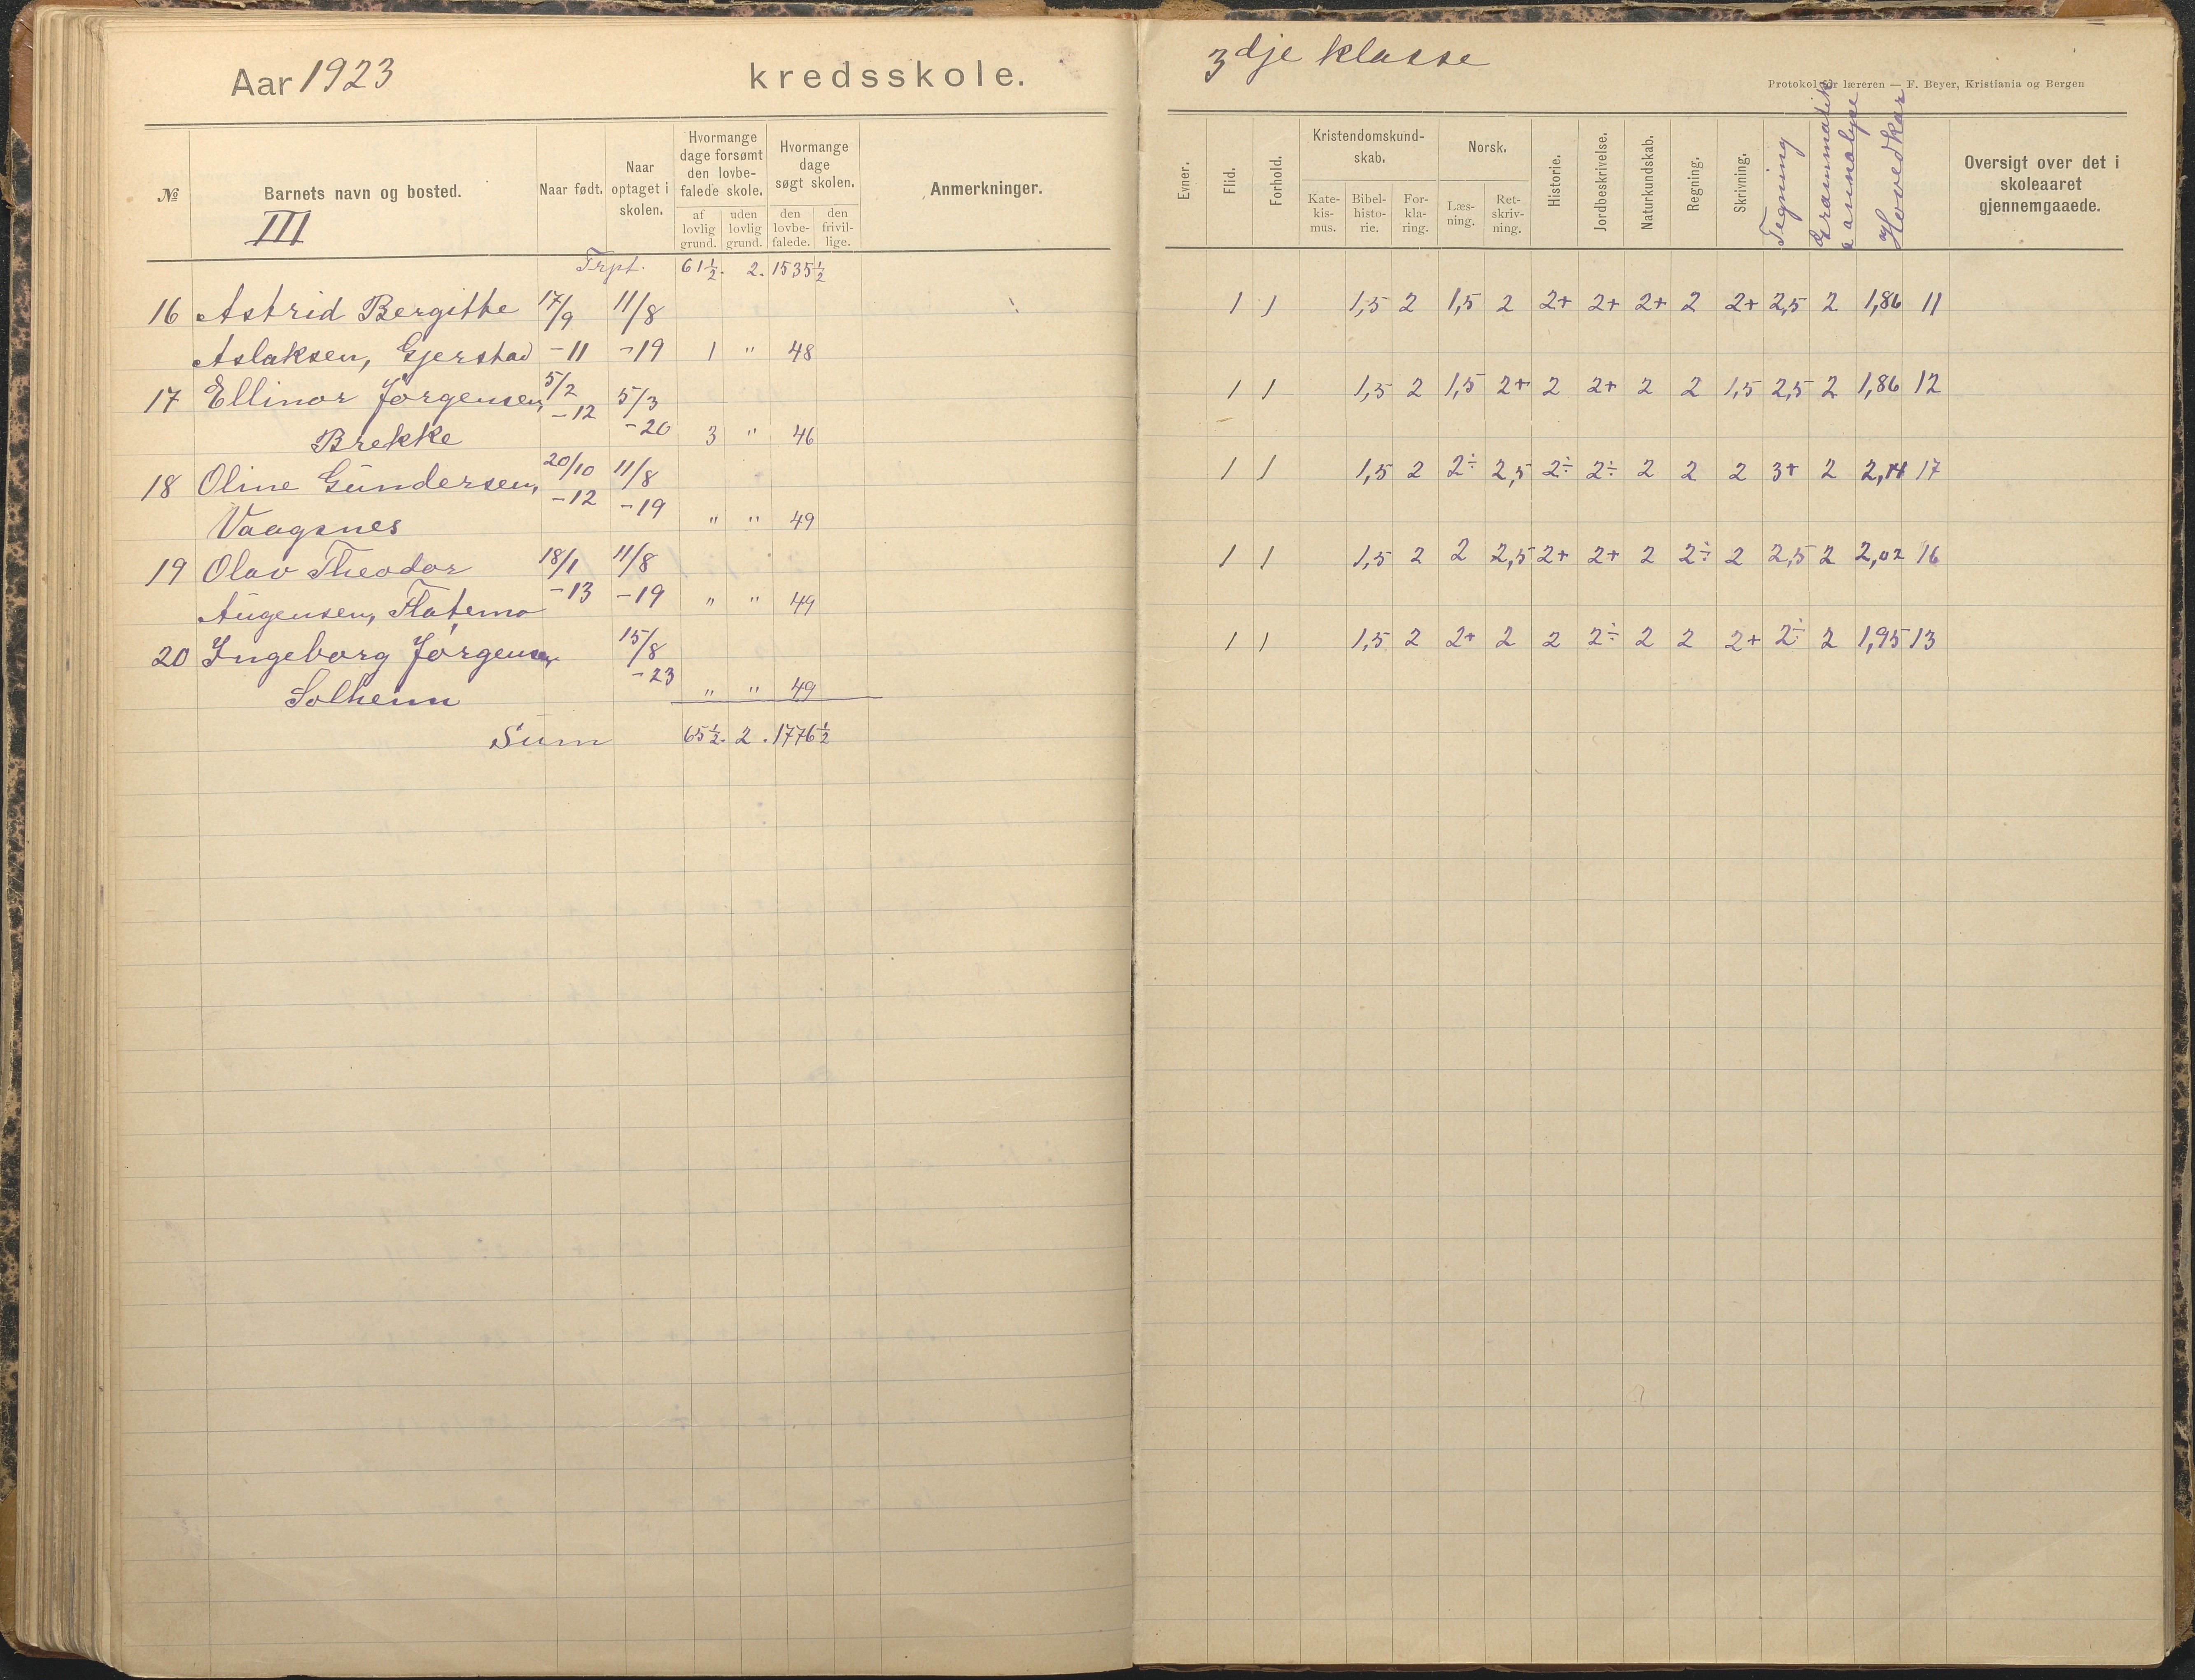 Aar 1923 kredsskole.
№ Barnets navn og bosted. Naar født. Naar optaget i skolen. Hvormange dage forsømt den lovbe- falede skole. Hvormange dage søgt skolen. Anmerkninger.
af lovlig grund. uden lovlig grund. den lovbe- falede. den frivil- lige.
III
Trpt. 61½. 2. 1535½
16 Astrid Bergithe 17/9 11/8
Aslaksen, Gjerstad -11 -19 1 " 48
17 Ellinor Jørgensen, 5/2 -12 5/3
Brekke -20 3 " 46
18 Oline Gundersen, 20/10 -12 11/8 -19
Vaagsnes " " 49
19 Olav Theodor 18/1 11/8
Augensen, Flatemo -13 -19 " " 49
20 Ingeborg Jørgensen, 15/8
Solheim -23 " " 49
Sum 65½. 2. 1776½
3dje klasse
Protokol for læreren — F. Beyer, Kristiania og Bergen
Evner. Flid. Forhold. Kristendomskund- skab. Norsk. Historie. Jordbeskrivelse. Naturkundskab. Regning. Skrivning. Tegning Grammatik Hovedkar Oversigt over det i skoleaaret gjennemgaaede.
Kate- kis- mus. Bibel- histo- rie. For- kla- ring. Læs- ning. Ret- skriv- ning.
1 1 1,5 2 1,5 2 2+ 2+ 2+ 2 2+ 2,5 2 1,86 11
1 1 1,5 2 1,5 2+ 2 2+ 2 2 1,5 2,5 2 1,86 12
1 1 1,5 2 2÷ 2,5 2÷ 2÷ 2 2 2 3+ 2 2,14 17
1 1 1,5 2 2 2,5 2+ 2+ 2 2÷ 2 2,5 2 2,02 16
1 1 1,5 2 2+ 2 2 2÷ 2 2 2+ 2÷ 2 1,95 13